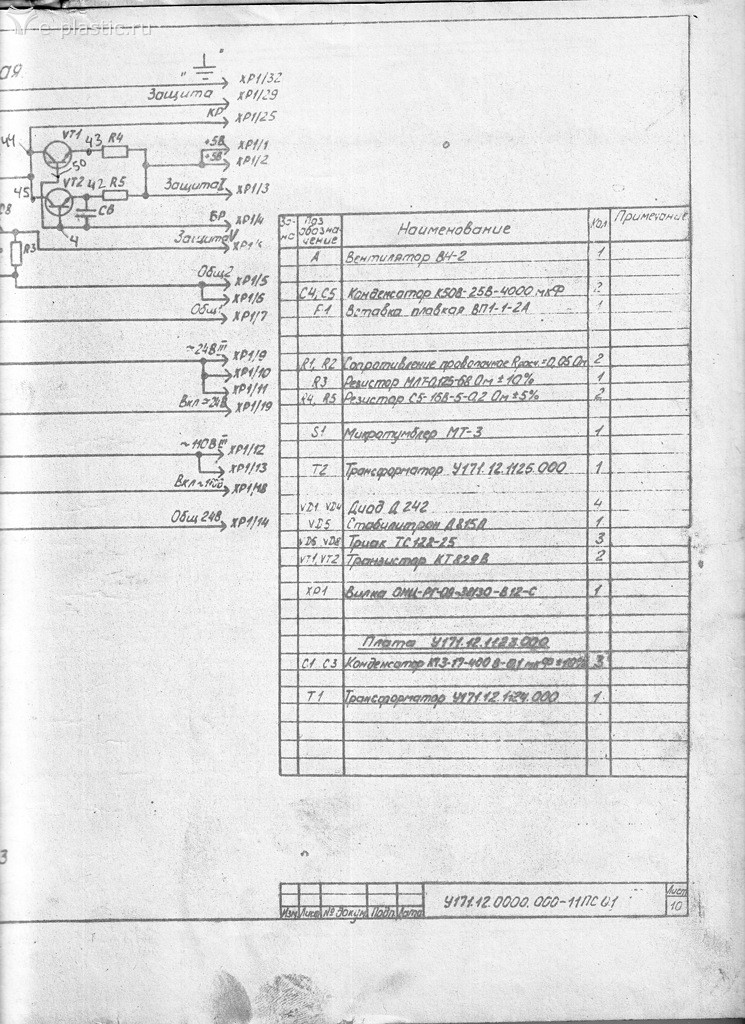 e-plastic.ru
ая.
"⏚" ХР1/32
Защита ХР1/29
КР ХР1/25
44 VT1 43 R4 +5В ХР1/1
50 +5В ХР1/2
VT2 42 R5 ЗащитаI ХР1/3
45
С8 С6 БР ХР1/4
4 ЗащитаV
R3
Общ2 ХР1/5
ХР1/6
Общ1 ХР1/7
~24В ХР1/9
ХР1/10
ХР1/11
Вкл ХР1/19
~110В ХР1/12
ХР1/13
Вкл ХР1/18
Общ 24В ХР1/14
Зо-на Поз обозна-чение Наименование Кол Примечание
А Вентилятор ВН-2 1
С4, С5 Конденсатор К50В-25В-4000 мкФ 2
F1 Вставка плавкая ВП1-1-2А 1
R1, R2 Сопротивление проволочное Rрасч.=0,05 Ом 2
R3 Резистор МЛТ-0,125-68 Ом ±10% 1
R4, R5 Резистор С5-16В-5-0,2 Ом ±5% 2
S1 Микротумблер МТ-3 1
Т2 Трансформатор У171.12.1125.000 1
VD1 VD4 Диод Д242 4
VD5 Стабилитрон Д815А 1
VD6 VD8 Триак ТС122-25 3
VT1, VT2 Транзистор КТ829В 2
ХР1 Вилка 1
Плата У171.12.1123.000
С1 С3 Конденсатор К73-17-400В-0,1 мкФ ±10% 3
Т1 Трансформатор У171.12.1124.000 1
3
Изм Лист № докум. Подп. Дата
У171.12.0000.000-11ПС 01
Лист
10